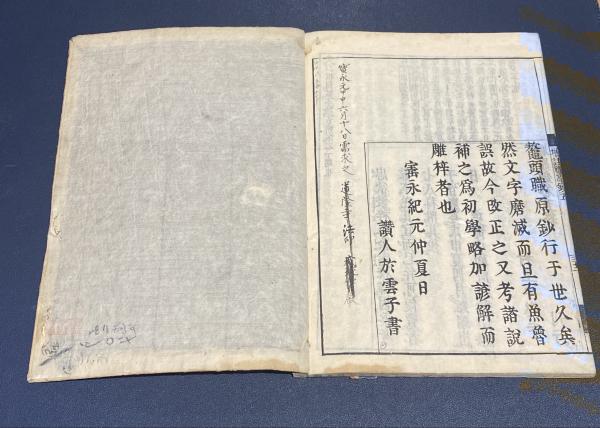 鼇頭職原鈔行于世久矣
然文字磨滅而且有魚魯
誤故今改正之又考諸說
補之爲初學略加諺解而
雕梓者也
寳永紀元仲夏日
讚人於雲子書
寳永元甲申六月十八日需求之